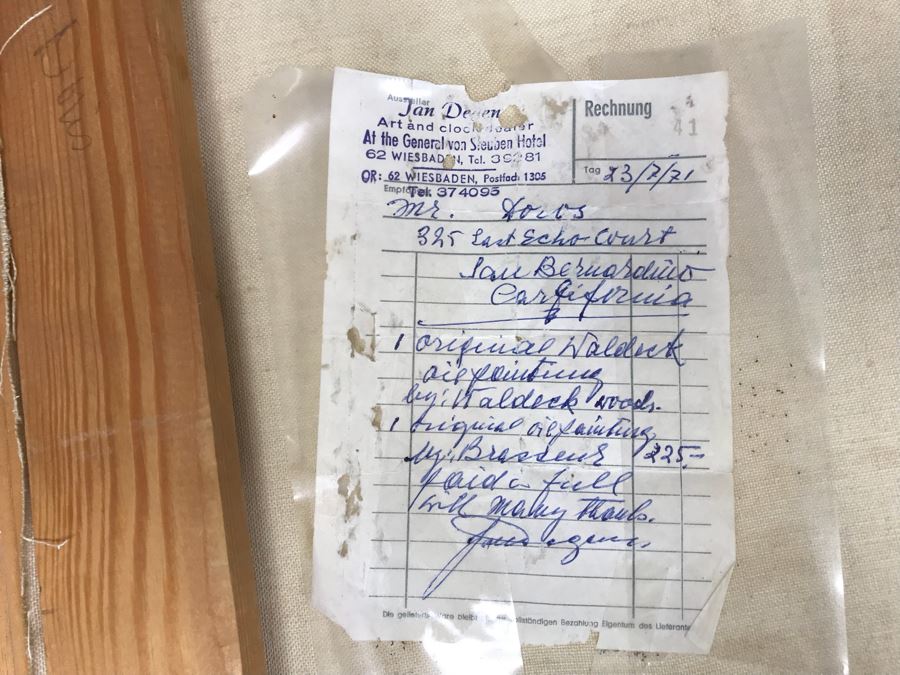 Aussteller
Jan Degen
Art and clock dealer
At the General von Steuben Hotel
62 WIESBADEN, Tel. 39281
OR: 62 WIESBADEN, Postfach 1305
Tel. 374095
Rechnung
41
Tag 23/7/71
Empfänger
Mr. Dows
325 East Echo-Court
San Bernardino
California
1 original Waldeck
oilpainting
by: Waldeck woods.
1 original oilpainting
by: 225.-
paid in full
with many thanks.
Die gelieferte Ware bleibt bis zur vollständigen Bezahlung Eigentum des Lieferanten